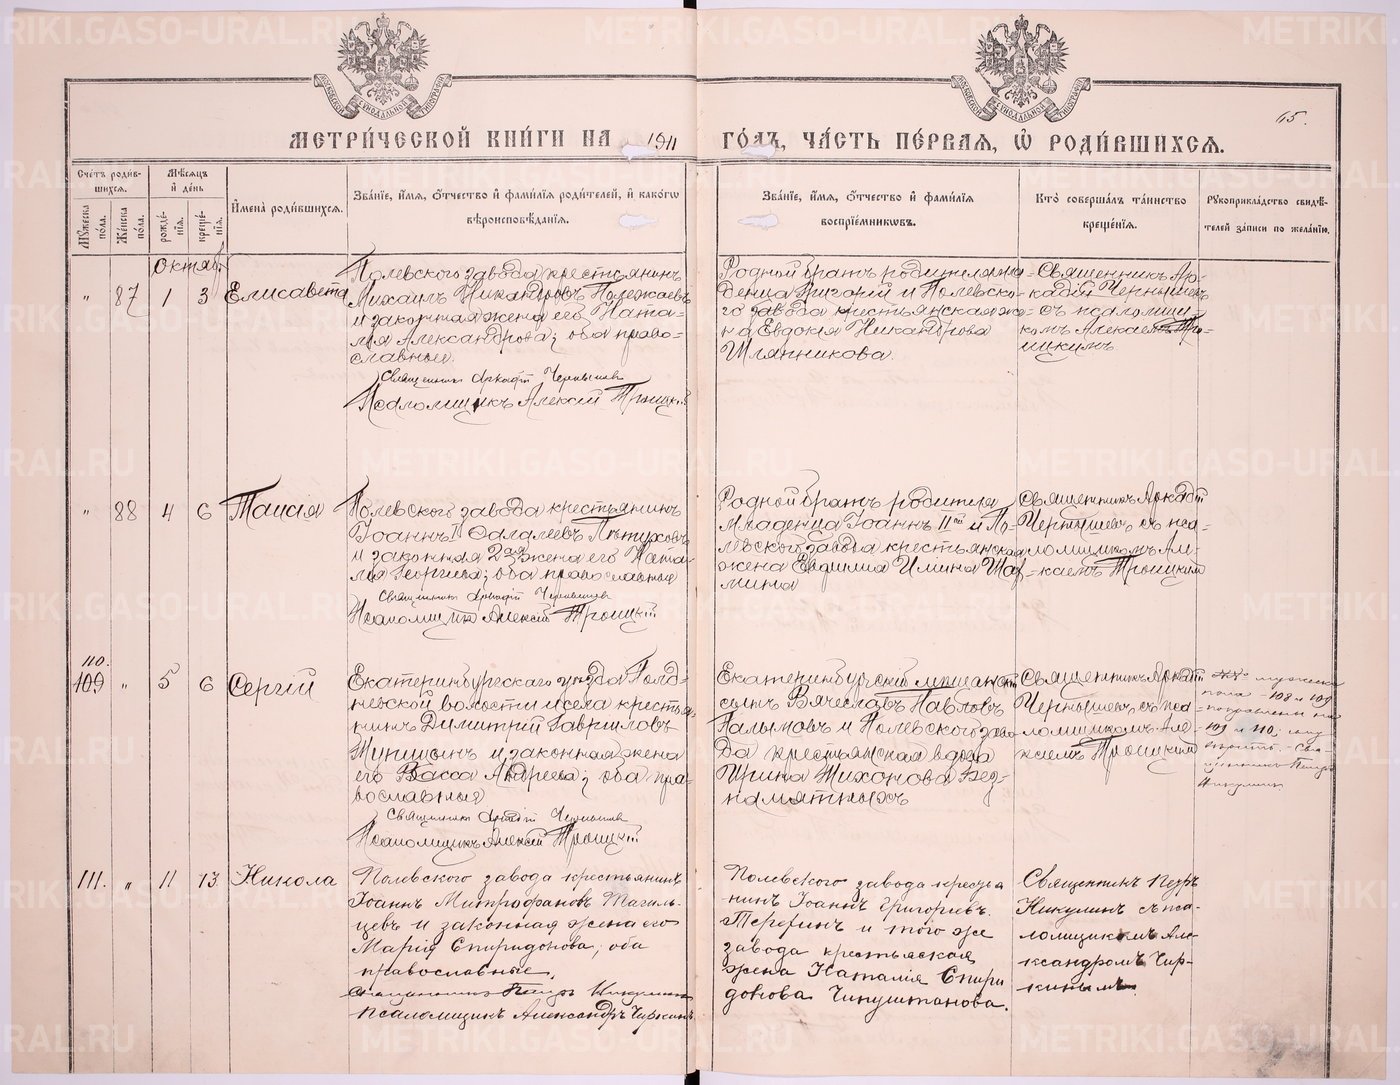 65.
МЕТРИ́ЧЕСКОЙ КНИ́ГИ НА 1911 ГО́ДЪ, ЧА́СТЬ ПЕ́РВАЯ, Ѡ РОДИ́ВШИХСЯ.
Сче́тъ роди́вшихся.
Му́жеска по́ла.
Же́нска по́ла.
Мѣ́сяцъ и҆ де́нь
рожде́нїя.
креще́нїя.
И҆мена̀ роди́вшихся.
Зва́нїе, и҆́мя, ѻ҆́тчество и҆ фами́лїя роди́телей, и҆ како́гѡ
вѣроисповѣ́данїя.
Зва́нїе, и҆́мя, ѻ҆́тчество и҆ фами́лїя
воспрїе́мниковъ.
Кто̀ соверша́лъ та́инство
креще́нїя.
Рꙋкоприкла́дство свидѣ́-
телей за́писи по жела́нїю.
Октяб.
" 87 1 3 Елисавета
Полевского завода крестьянинъ
Михаилъ Никандровъ Полежаевъ
и законная жена его Ната-
лія Александрова; оба право-
славные.
Священникъ Аркадій Чернышевъ
Псаломщикъ Алексій Троицкій
Родной братъ родителя мла-
денца Григорій и Полевско-
го завода крестьянская же-
на Евдокія Никандрова
Шляпникова.
Священникъ Ар-
кадій Чернышевъ
съ псаломщи-
комъ Алексіемъ Тро-
ицкимъ.
" 88 4 6 Таисія
Полевского завода крестьянинъ
Іоаннъ Ѳалалеевъ Пѣтуховъ
и законная 2ая жена его Ната-
лія Георгіева; оба православные
Священникъ Аркадій Чернышевъ
Псаломщикъ Алексій Троицкій
Родной братъ родителя
младенца Іоаннъ IIой и По-
левского завода крестьянская
жена Евдокія Ильина
Священникъ Аркадій
Чернышевъ съ пса-
ломщикомъ Але-
ксіемъ Троицкимъ
110.
109 " 5 6 Сергій
Екатеринбургскаго уѣзда
волости и села кресть-
янинъ Димитрій Гавриловъ
и законная жена
его Васса Андреева; оба пра-
вославные
Священникъ Аркадій Чернышевъ
Псаломщикъ Алексій Троицкій
Екатеринбургскій мѣщанскій
сынъ Вячеславъ Павловъ
Палымовъ и Полевского заво-
да крестьянская вдова
Ирина Тихонова Без-
памятныхъ
Священникъ Аркадій
Чернышевъ съ пса-
ломщикомъ Але-
ксіемъ Троицкимъ
мужеска
пола - 108 и 109
поправлены на
109 и 110;
вѣрить. Свя-
щенникъ Петръ
Никулинъ
111. " 11 13 Никола
Полевского завода крестьянинъ
Іоаннъ Митрофановъ Тагиль-
цевъ и законная жена его
Марія Спиридонова; оба
православные.
Священникъ Петръ Никулинъ
Псаломщикъ Александръ Чиркинъ
Полевского завода крестья
нинъ Іоаннъ Григорьевъ
и того же
завода крестьянская
жена Наталія Спири
донова Чипуштанова.
Священникъ Петръ
Никулинъ съ пса-
ломщикомъ Але-
ксандромъ Чир-
кинымъ
METRIKI.GASO-URAL.RU